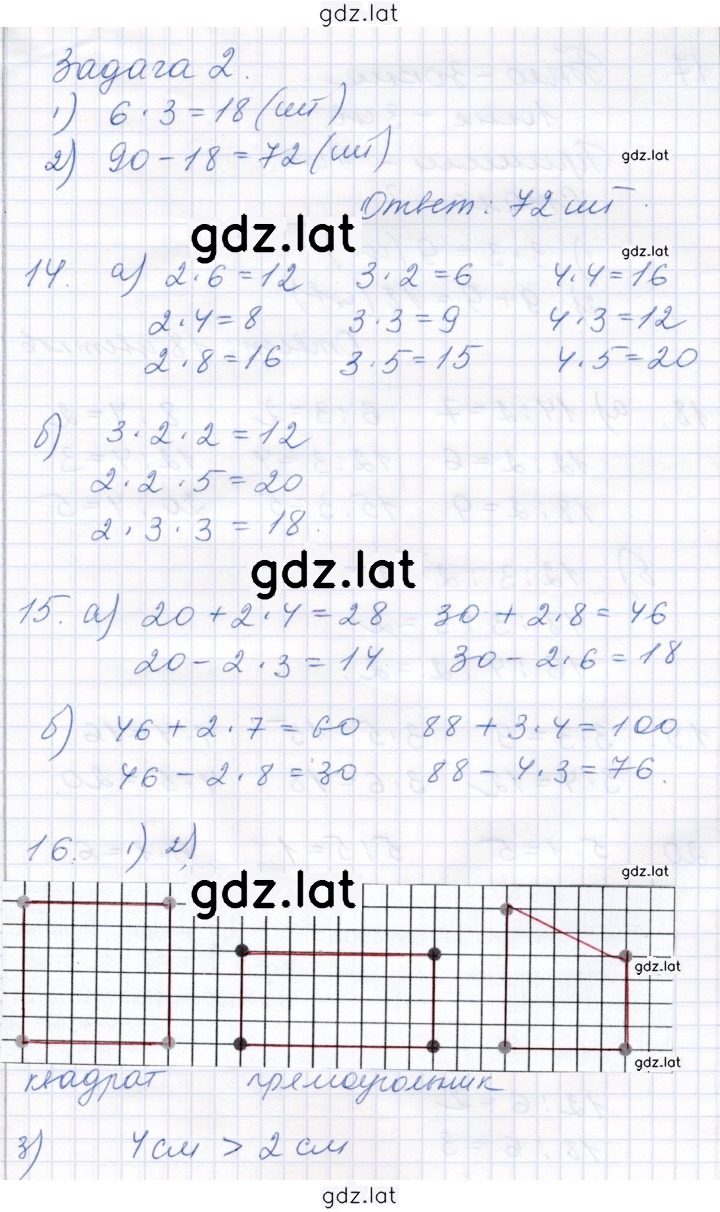 gdz.lat
Задача 2.
1) 6 · 3 = 18 (шт)
2) 90 – 18 = 72 (шт)
gdz.lat
Ответ: 72 шт.
gdz.lat
gdz.lat
14. а) 2 · 6 = 12 3 · 2 = 6 4 · 4 = 16
2 · 4 = 8 3 · 3 = 9 4 · 3 = 12
2 · 8 = 16 3 · 5 = 15 4 · 5 = 20
б) 3 · 2 · 2 = 12
2 · 2 · 5 = 20
2 · 3 · 3 = 18.
gdz.lat
15. а) 20 + 2 · 4 = 28 30 + 2 · 8 = 46
20 – 2 · 3 = 14 30 – 2 · 6 = 18
б) 46 + 2 · 7 = 60 88 + 3 · 4 = 100
46 – 2 · 8 = 30 88 – 4 · 3 = 76.
16. 1) 2)
gdz.lat
gdz.lat
gdz.lat
gdz.lat
квадрат прямоугольник
3) 4 см > 2 см
gdz.lat